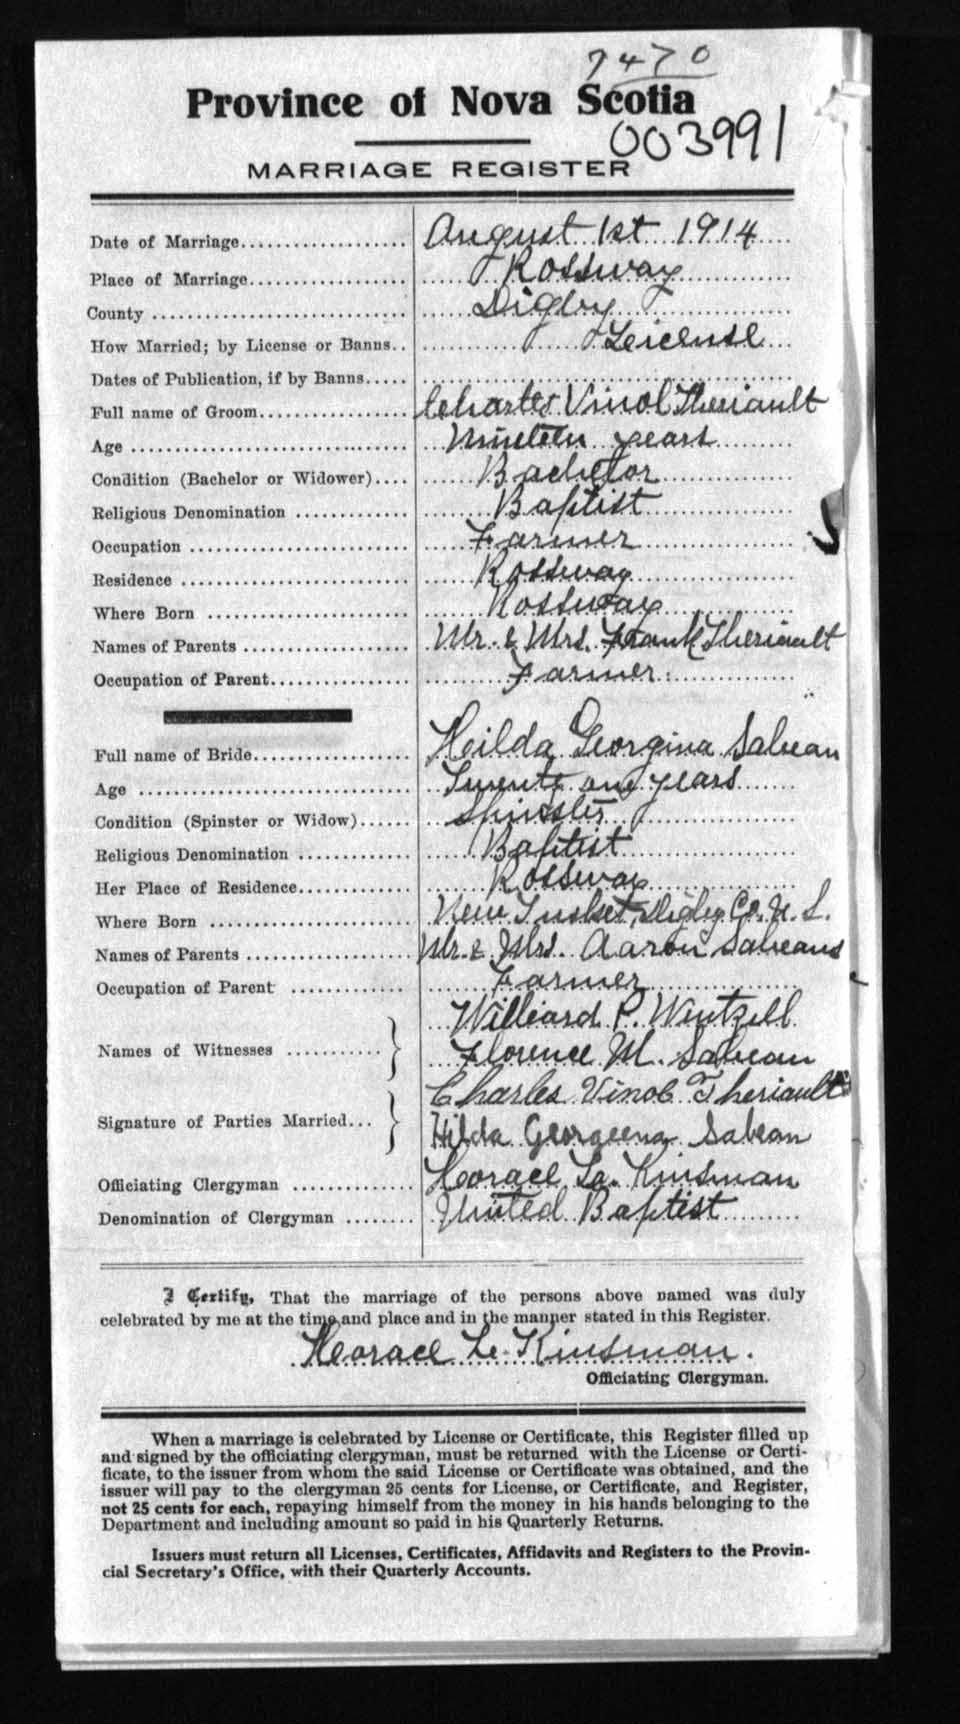 7470
Province of Nova Scotia
003991
MARRIAGE REGISTER
Date of Marriage.................... August 1st 1914
Place of Marriage................... Rossway
County .............................. Digby
How Married; by License or Banns.. Leicense
Dates of Publication, if by Banns.....
Full name of Groom.................. Charles Vinol Theriault
Age .................................. Nineteen years
Condition (Bachelor or Widower).... Bachelor
Religious Denomination ............. Baptist
Occupation .......................... Farmer
Residence ........................... Rossway
Where Born ........................ Rossway
Names of Parents .................... Mr. & Mrs. Frank Theriault
Occupation of Parent................. Farmer
Full name of Bride................... Hilda Georgina Sabean
Age ................................. Twenty one years
Condition (Spinster or Widow)...... Spinster
Religious Denomination ............. Baptist
Her Place of Residence.............. Rossway
Where Born ........................ New Tusket, Digby Co. N. S.
Names of Parents .................... Mr. & Mrs. Aaron Sabeans
Occupation of Parent .............. Farmer
Names of Witnesses ........... } Williard P. Wentzell
Florence M. Sabean
Signature of Parties Married... } Charles Vinol Theriault
Hilda Georgeena Sabean
Officiating Clergyman .............. Horace Le. Kinsman
Denomination of Clergyman ........ United Baptist
I Certify, That the marriage of the persons above named was duly
celebrated by me at the time and place and in the manner stated in this Register.
Horace Le. Kinsman.
Officiating Clergyman.
When a marriage is celebrated by License or Certificate, this Register filled up
and signed by the officiating clergyman, must be returned with the License or Certi-
ficate, to the issuer from whom the said License or Certificate was obtained, and the
issuer will pay to the clergyman 25 cents for License, or Certificate, and Register,
not 25 cents for each, repaying himself from the money in his hands belonging to the
Department and including amount so paid in his Quarterly Returns.
Issuers must return all Licenses, Certificates, Affidavits and Registers to the Provin-
cial Secretary's Office, with their Quarterly Accounts.